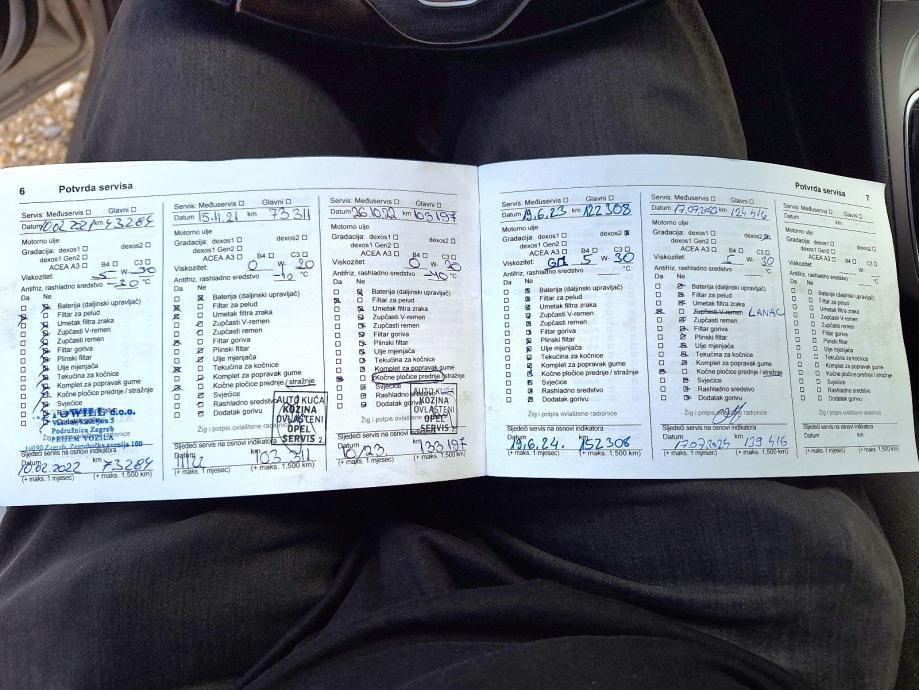 6 Potvrda servisa
Servis: Međuservis Glavni
Datum 10.02.2021 km 43284
Motorno ulje
Gradacija: dexos1 dexos2
dexos1 Gen2
ACEA A3 B4 C3
Viskozitet: 5 W- 30
Antifriz, rashladno sredstvo -30 °C
Da Ne
Baterija (daljinski upravljač)
Filtar za pelud
Umetak filtra zraka
Zupčasti V-remen
Zupčasti remen
Filtar goriva
Plinski filtar
Ulje mjenjača
Tekućina za kočnice
Komplet za popravak gume
Kočne pločice prednje / stražnje
Svjećice
Podružnica Zagreb
PRIJEM VOZILA
Sljedeći servis na osnovi indikatora
Datum km
10.02.2022 73284
(+ maks. 1 mjesec) (+ maks. 1,500 km)
Servis: Međuservis Glavni
Datum 15.11.21 km 73311
Motorno ulje
Gradacija: dexos1 dexos2
dexos1 Gen2
ACEA A3 B4 C3
Viskozitet: 0 W- 20
Antifriz, rashladno sredstvo -40 °C
Da Ne
Baterija (daljinski upravljač)
Filtar za pelud
Umetak filtra zraka
Zupčasti V-remen
Zupčasti remen
Filtar goriva
Plinski filtar
Ulje mjenjača
Tekućina za kočnice
Komplet za popravak gume
Kočne pločice prednje / stražnje
Svjećice
Rashladno sredstvo
Dodatak gorivu
AUTO KUĆA
KOZINA
OVLAŠTENI
OPEL
SERVIS 2
Žig i potpis ovlaštene
Sljedeći servis na osnovi indikatora
Datum km
(+ maks. 1 mjesec) (+ maks. 1,500 km)
Servis: Međuservis Glavni
Datum 26.10.22 km 103197
Motorno ulje
Gradacija: dexos1 dexos2
dexos1 Gen2
ACEA A3 B4 C3
Viskozitet: 0 W- 20
Antifriz, rashladno sredstvo -40 °C
Da Ne
Baterija (daljinski upravljač)
Filtar za pelud
Umetak filtra zraka
Zupčasti V-remen
Zupčasti remen
Filtar goriva
Plinski filtar
Ulje mjenjača
Tekućina za kočnice
Komplet za popravak gume
Kočne pločice prednje / stražnje
Svjećice
Rashladno
Dodatak goriv
AUTO KUĆA
KOZINA
OVLAŠTENI
OPEL
SERVIS 2
Žig i potpis ovlaštene
Sljedeći servis na osnovi indikatora
Datum km
10/23 133197
(+ maks. 1 mjesec) (+ maks. 1,500 km)
Potvrda servisa 7
Servis: Međuservis Glavni
Datum 19.6.23 km 122308
Motorno ulje
Gradacija: dexos1 dexos2
dexos1 Gen2
ACEA A3 B4 C3
Viskozitet: 5 W- 30
Antifriz, rashladno sredstvo °C
Da Ne
Baterija (daljinski upravljač)
Filtar za pelud
Umetak filtra zraka
Zupčasti V-remen
Zupčasti remen
Filtar goriva
Plinski filtar
Ulje mjenjača
Tekućina za kočnice
Komplet za popravak gume
Kočne pločice prednje / stražnje
Svjećice
Rashladno sredstvo
Dodatak gorivu
Žig i potpis ovlaštene radionice
Sljedeći servis na osnovi indikatora
Datum km
19.6.24. 152308
(+ maks. 1 mjesec) (+ maks. 1,500 km)
Servis: Međuservis Glavni
Datum 17.09.2023 km 124416
Motorno ulje
Gradacija: dexos1 dexos2
dexos1 Gen2
ACEA A3 B4 C3
Viskozitet: 5 W- 30
Antifriz, rashladno sredstvo °C
Da Ne
Baterija (daljinski upravljač)
Filtar za pelud
Umetak filtra zraka
Zupčasti V-remen LANAC
Zupčasti remen
Filtar goriva
Plinski filtar
Ulje mjenjača
Tekućina za kočnice
Komplet za popravak gume
Kočne pločice prednje / stražnje
Svjećice
Rashladno sredstvo
Dodatak gorivu
Žig i potpis ovlaštene radionice
Sljedeći servis na osnovi indikatora
Datum km
17.09.2024 139416
(+ maks. 1 mjesec) (+ maks. 1,500 km)
Servis: Međuservis Glavni
Datum km
Motorno ulje
Gradacija: dexos1 dexos2
dexos1 Gen2
ACEA A3 B4 C3
Viskozitet: W-
Antifriz, rashladno sredstvo °C
Da Ne
Baterija (daljinski upravljač)
Filtar za pelud
Umetak filtra zraka
Zupčasti V-remen
Zupčasti remen
Filtar goriva
Plinski filtar
Ulje mjenjača
Tekućina za kočnice
Komplet za popravak gume
Kočne pločice prednje / stražnje
Svjećice
Rashladno sredstvo
Dodatak gorivu
Žig i potpis ovlaštene radionice
Sljedeći servis na osnovi indikatora
Datum km
(+ maks. 1 mjesec) (+ maks. 1,500 km)